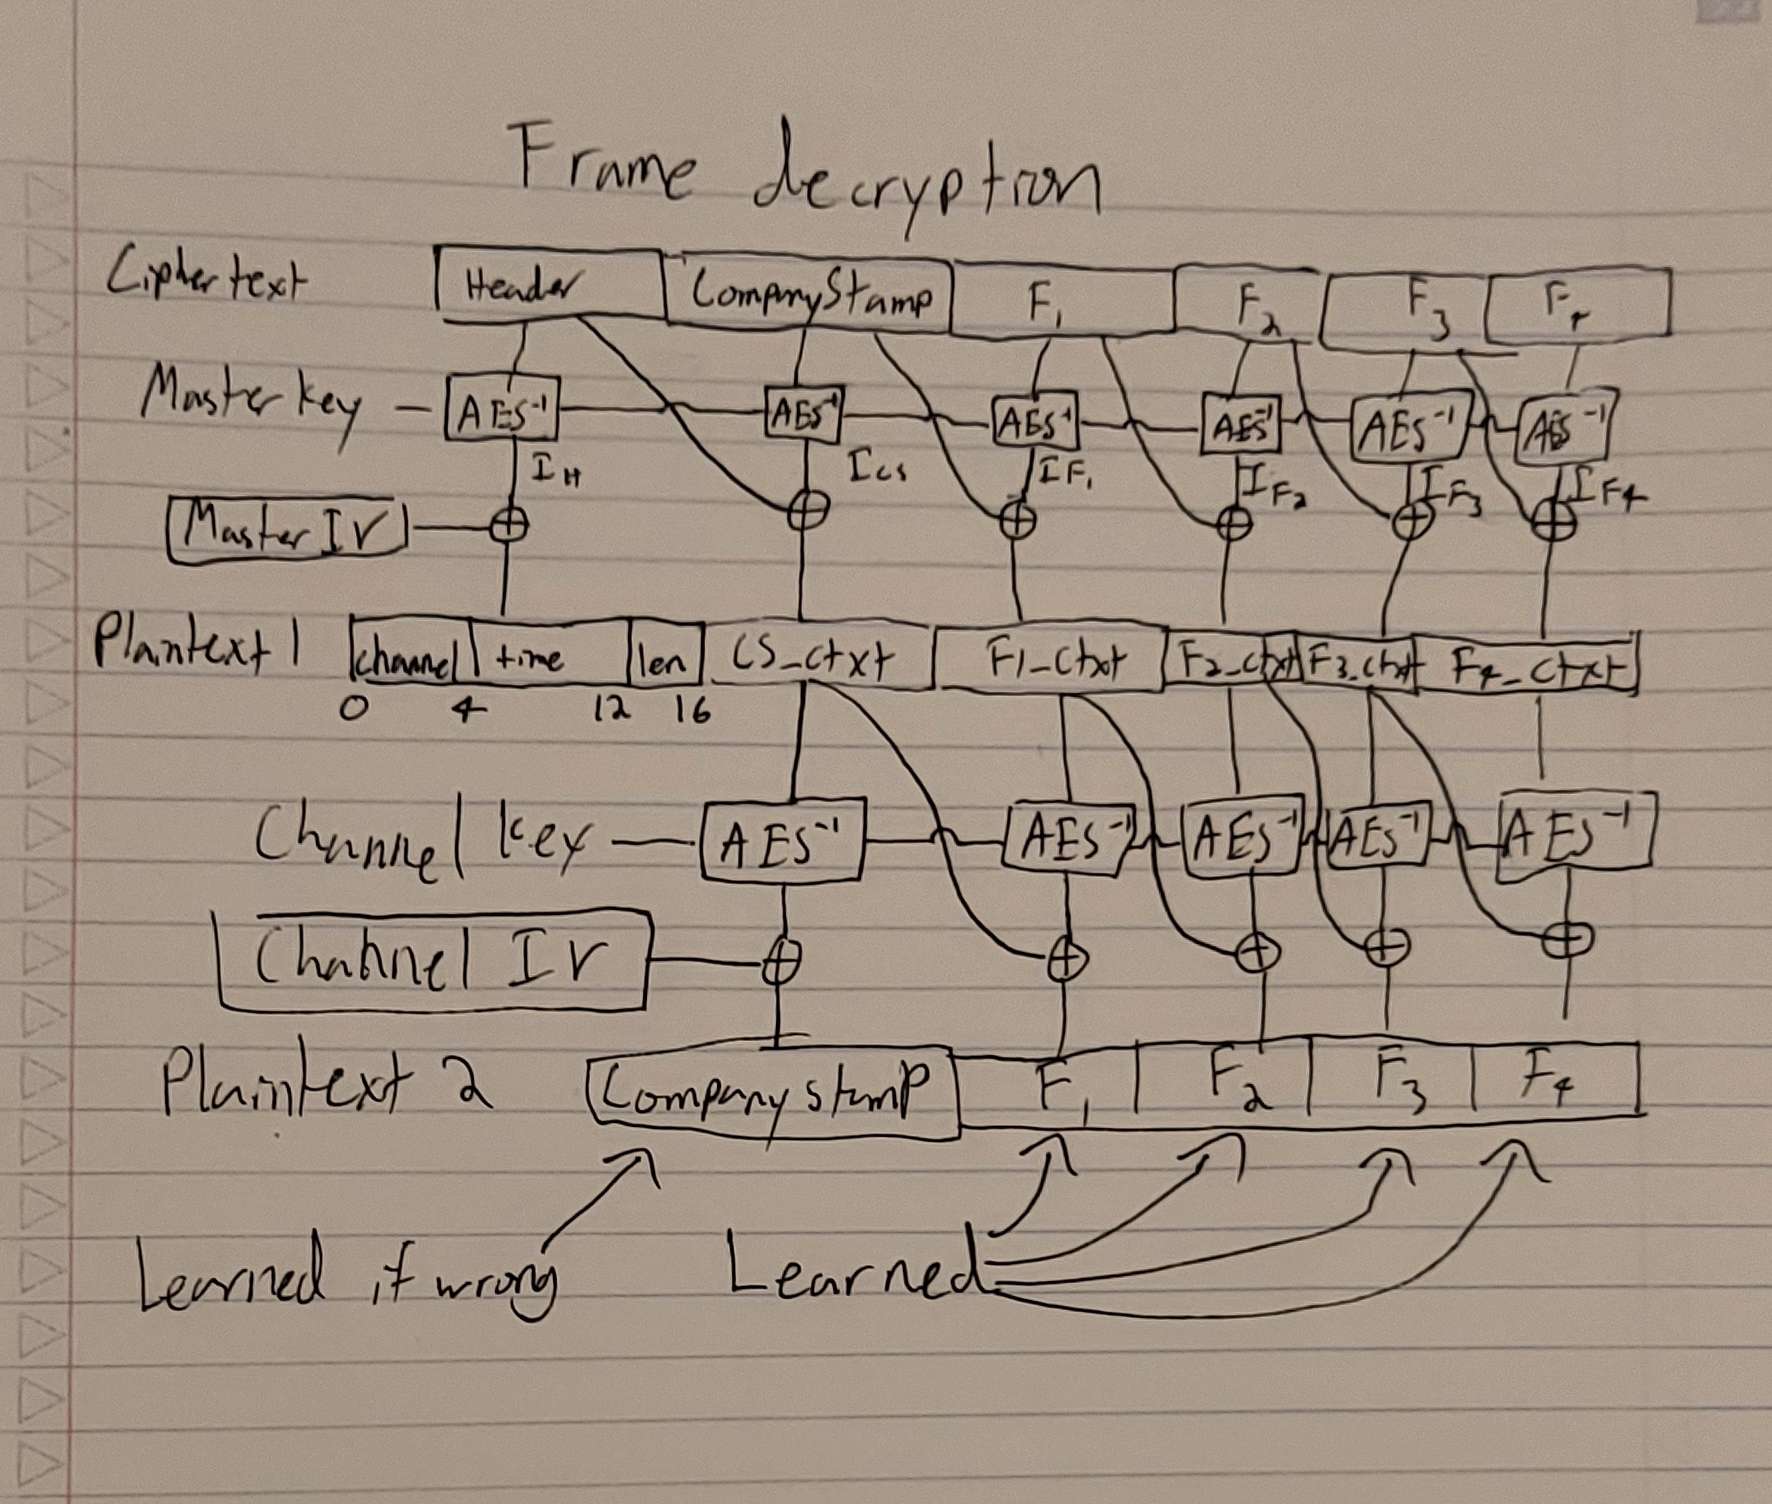 Frame decryption
Ciphertext Header CompanyStamp F1 F2 F3 F4
Master key AES-1 AES-1 AES-1 AES-1 AES-1 AES-1
IH ICS IF1 IF2 IF3 IF4
Master IV
Plaintext 1 channel time len CS_ctxt F1_ctxt F2_ctxt F3_ctxt F4_ctxt
0 4 12 16
Channel key AES-1 AES-1 AES-1 AES-1 AES-1
Channel IV
Plaintext 2 Company stamp F1 F2 F3 F4
Learned if wrong Learned